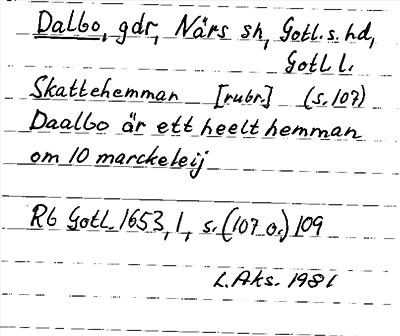 Dalbo, gdr, Närs sh, Gotl. s. hd,
Gotl. l.
Skattehemman [rubr.] (s. 107)
Daalbo är ett heelt hemman
om 10 marckeleij
Rb Gotl. 1653, 1, s. (107 o.) 109
L. Aks. 1981